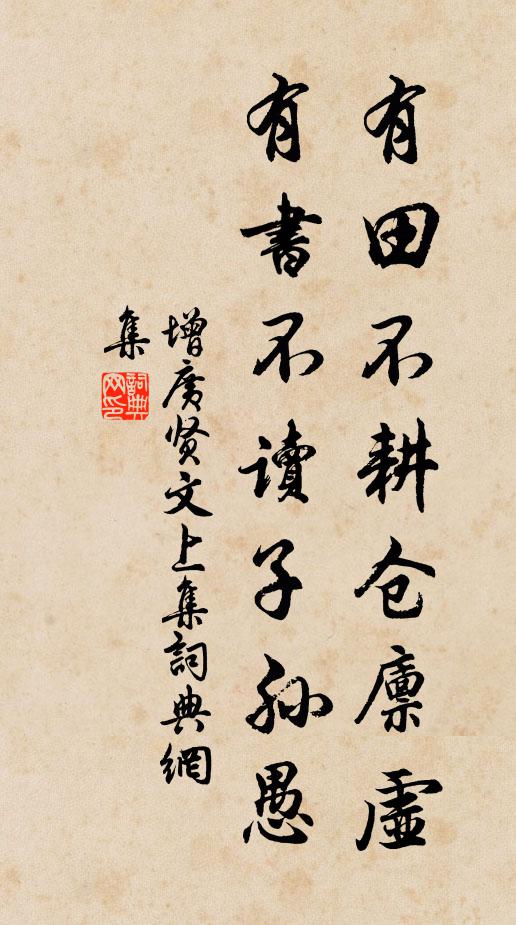 有田不耕仓廪虚
有書不读子孙愚
增广贤文上集詞典網
集
詞典网印